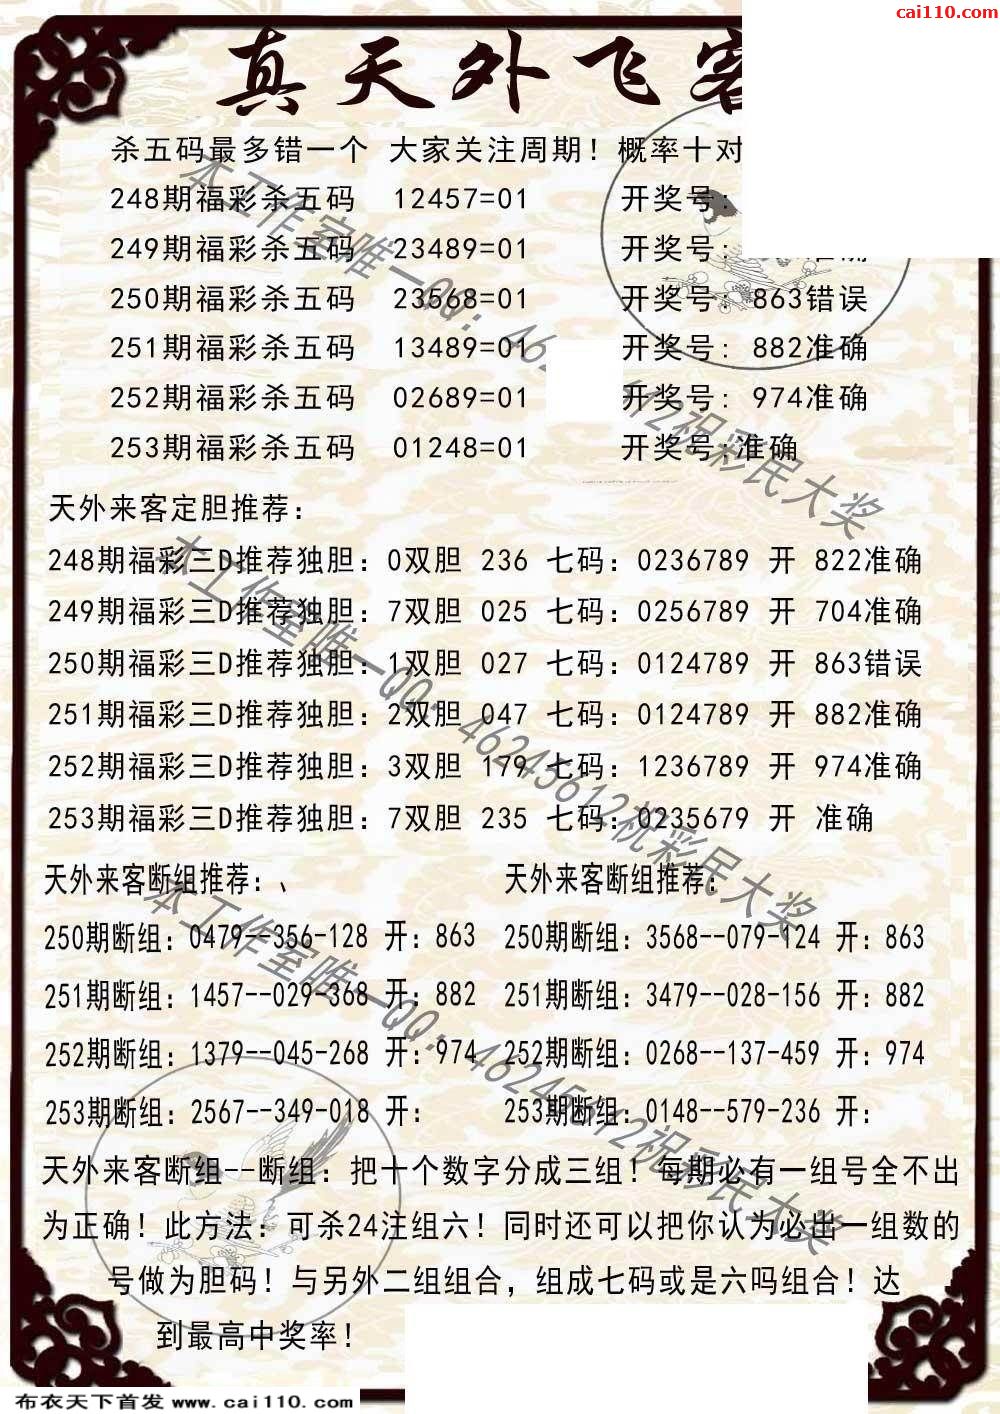 cai110.com
真天外飞客
杀五码最多错一个 大家关注周期！概率十对
248期福彩杀五码 12457=01 开奖号:
249期福彩杀五码 23489=01 开奖号: 准确
250期福彩杀五码 23568=01 开奖号: 863错误
251期福彩杀五码 13489=01 开奖号: 882准确
252期福彩杀五码 02689=01 开奖号: 974准确
253期福彩杀五码 01248=01 开奖号:准确
天外来客定胆推荐:
248期福彩三D推荐独胆: 0双胆 236 七码: 0236789 开 822准确
249期福彩三D推荐独胆: 7双胆 025 七码: 0256789 开 704准确
250期福彩三D推荐独胆: 1双胆 027 七码: 0124789 开 863错误
251期福彩三D推荐独胆: 2双胆 047 七码: 0124789 开 882准确
252期福彩三D推荐独胆: 3双胆 179 七码: 1236789 开 974准确
253期福彩三D推荐独胆: 7双胆 235 七码: 0235679 开 准确
天外来客断组推荐:、 天外来客断组推荐:
250期断组: 0479--356-128 开: 863 250期断组: 3568--079-124 开: 863
251期断组: 1457--029-368 开: 882 251期断组: 3479--028-156 开: 882
252期断组: 1379--045-268 开: 974 252期断组: 0268--137-459 开: 974
253期断组: 2567--349-018 开: 253期断组: 0148--579-236 开:
天外来客断组--断组: 把十个数字分成三组！每期必有一组号全不出
为正确！此方法: 可杀24注组六！同时还可以把你认为必出一组数的
号做为胆码！与另外二组组合，组成七码或是六吗组合！达
到最高中奖率！
本工作室唯一QQ: 46 12祝彩民大奖
本工作室唯一QQ: 46245612祝彩民大奖
本工作室唯一QQ: 46245612祝彩民大奖
布衣天下首发 www.cai110.com